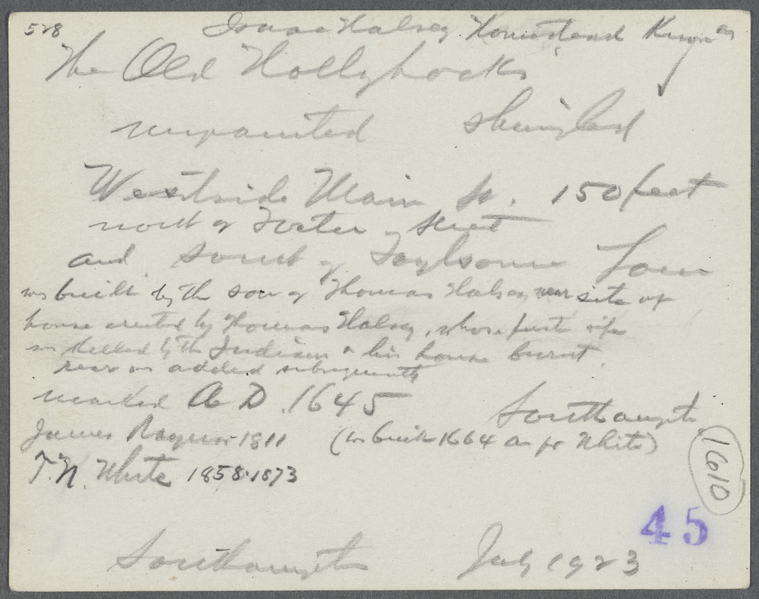 528
Isaac Halsey Homestead Known as
The Old Hollyhocks
unpainted shingled
Westside Main St. 150 feet
north of Foster street
and south of Toylsome Lane
was built by the son of Thomas Halsey near site of
house erected by Thomas Halsey, whose first wife
was killed by the Indians & his house burnt.
rear was added subsequently
marked A D. 1645 Southampton
James 1811 (was built 1664 as per White)
T. N. White 1858-1873
1610
45
Southampton July 1923